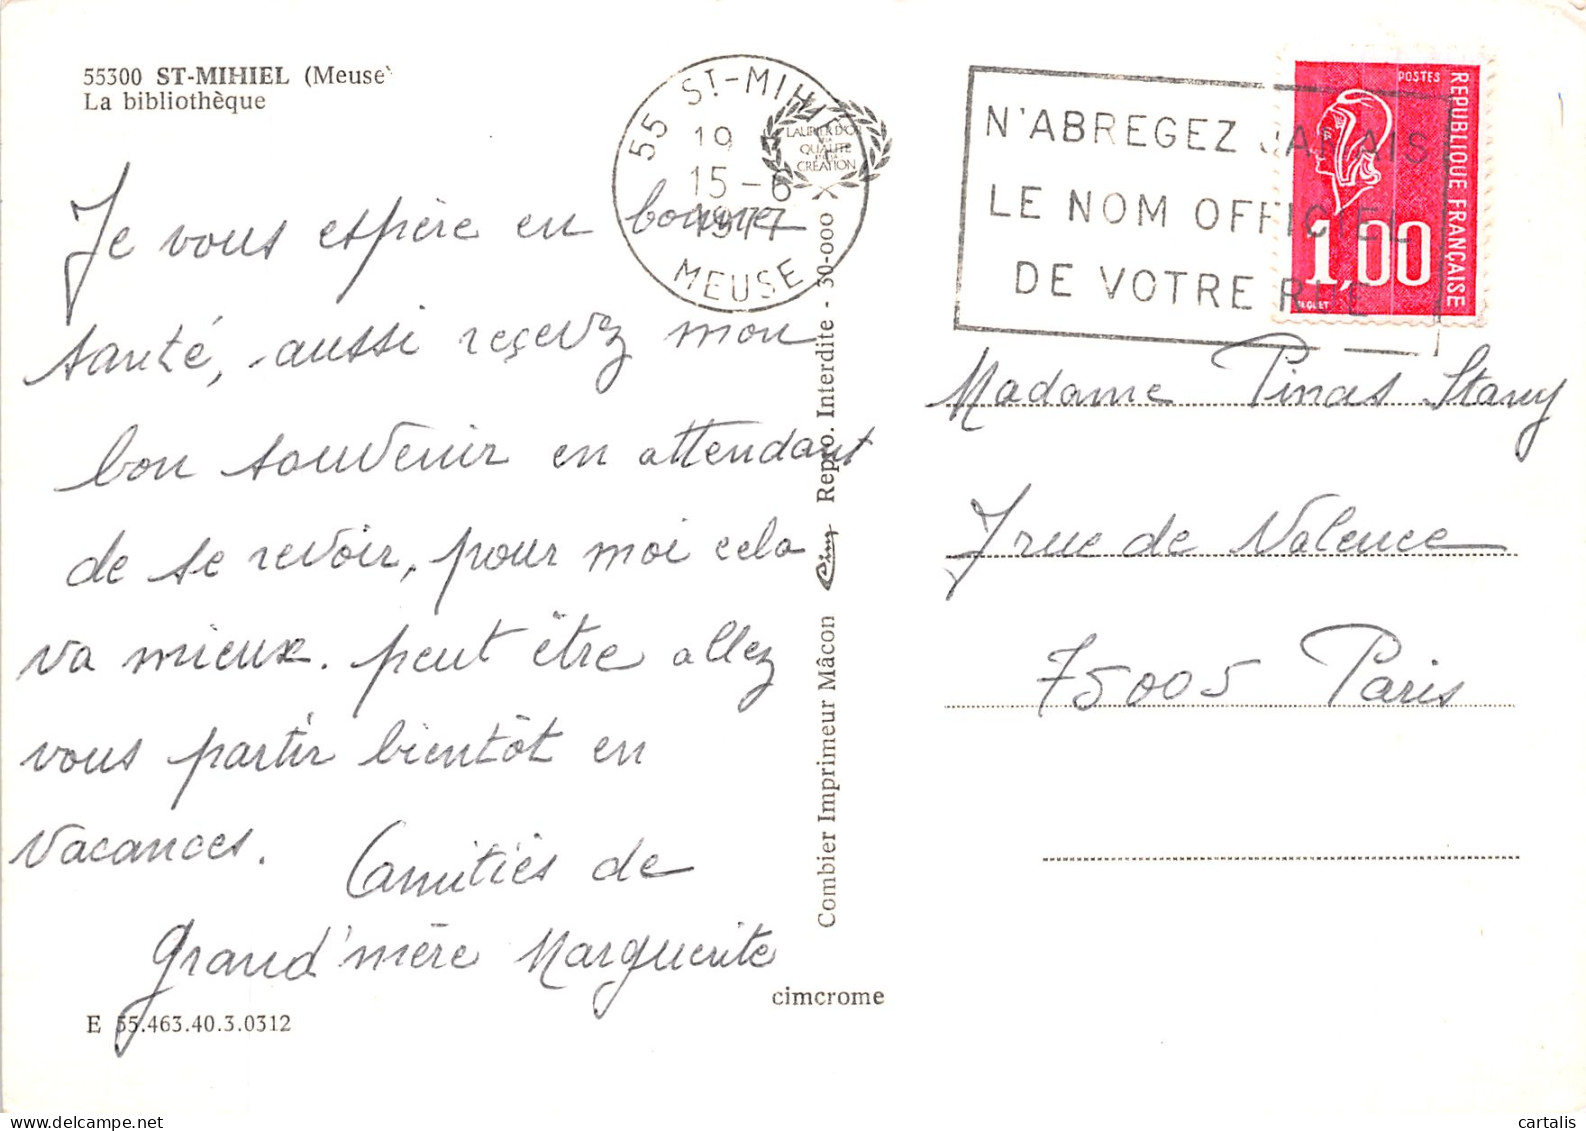 55300 ST-MIHIEL (Meuse)
La bibliothèque
Je vous espère en bonne
santé, aussi reçevez mon
bon souvenir en attendant
de se revoir, pour moi cela
va mieux. peut être allez
vous partir bientôt en
vacances. Camitiés de
Grand'mère Marguerite
E 55.463.40.3.0312
cimcrome
Combier Imprimeur Mâcon Cim Repro. Interdite - 30-000
LAURIER D'OR
QUALITE
CREATION
55 ST-MIHIEL
19
15-6
1977
MEUSE
N'ABREGEZ JAMAIS
LE NOM OFFICIEL
DE VOTRE RUE
POSTES
REPUBLIQUE FRANÇAISE
1,00
Madame Pinas Stany
7 rue de Valence
75005 Paris
cartalis
delcampe.net